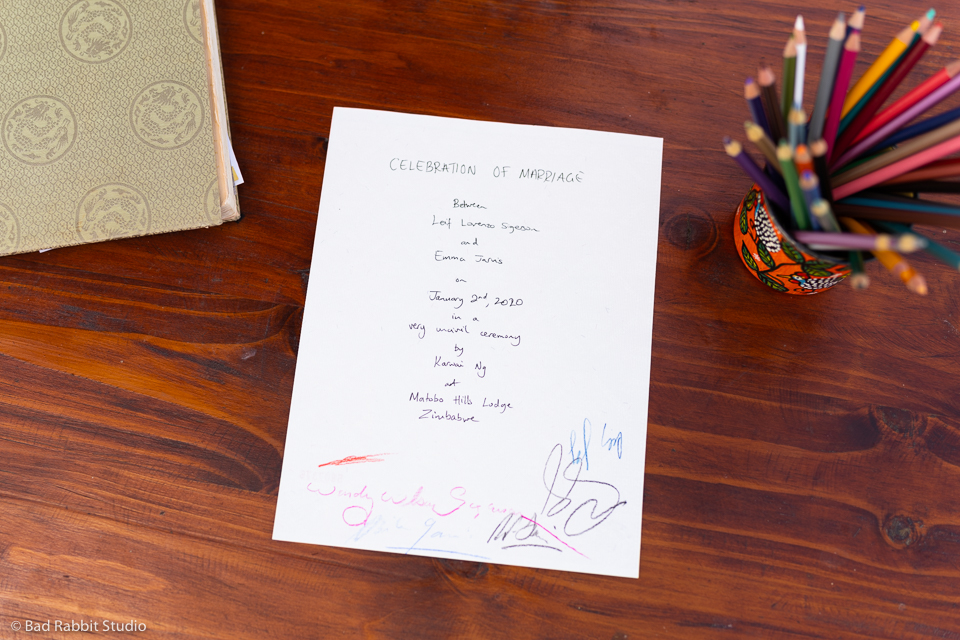 CELEBRATION OF MARRIAGE
Between
Leif Lorenzo Sgeson
and
Emma Jarvis
on
January 2nd, 2020
in a
very uncivil ceremony
by
Karwai Ng
at
Matobo Hills Lodge
Zimbabwe
Wendy
© Bad Rabbit Studio